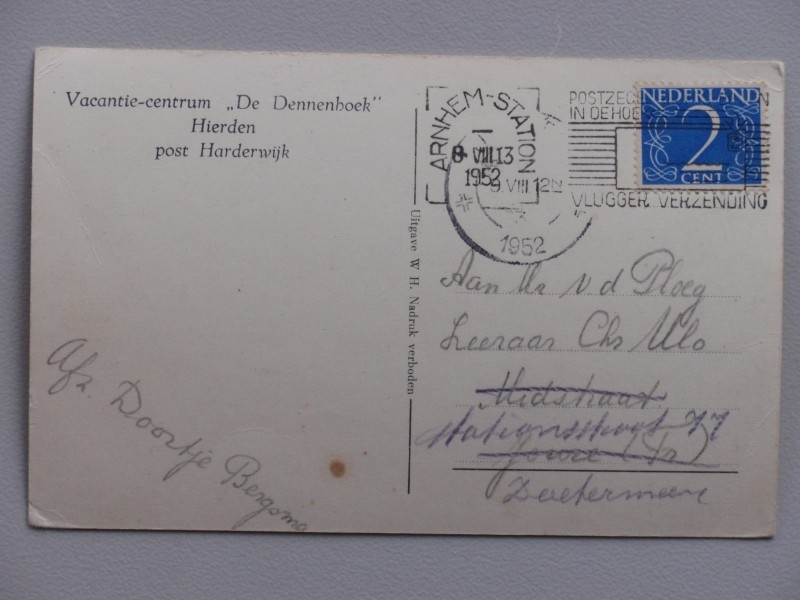 Vacantie-centrum „De Dennenhoek"
Hierden
post Harderwijk
ARNHEM-STATION
8 VIII 13
1952
9 VIII 12N
1952
POSTZEG
IN DE HOE
VLUGGER VERZENDING
NEDERLAND
2
CENT
Uitgave W. H. Nadruk verboden
Aan Mr v. d Ploeg
Leeraar Chr Ulo
Midstraat
Stationsstraat 77
Joure (Fr)
Zoetermeer
Afz. Doortje Bergsma